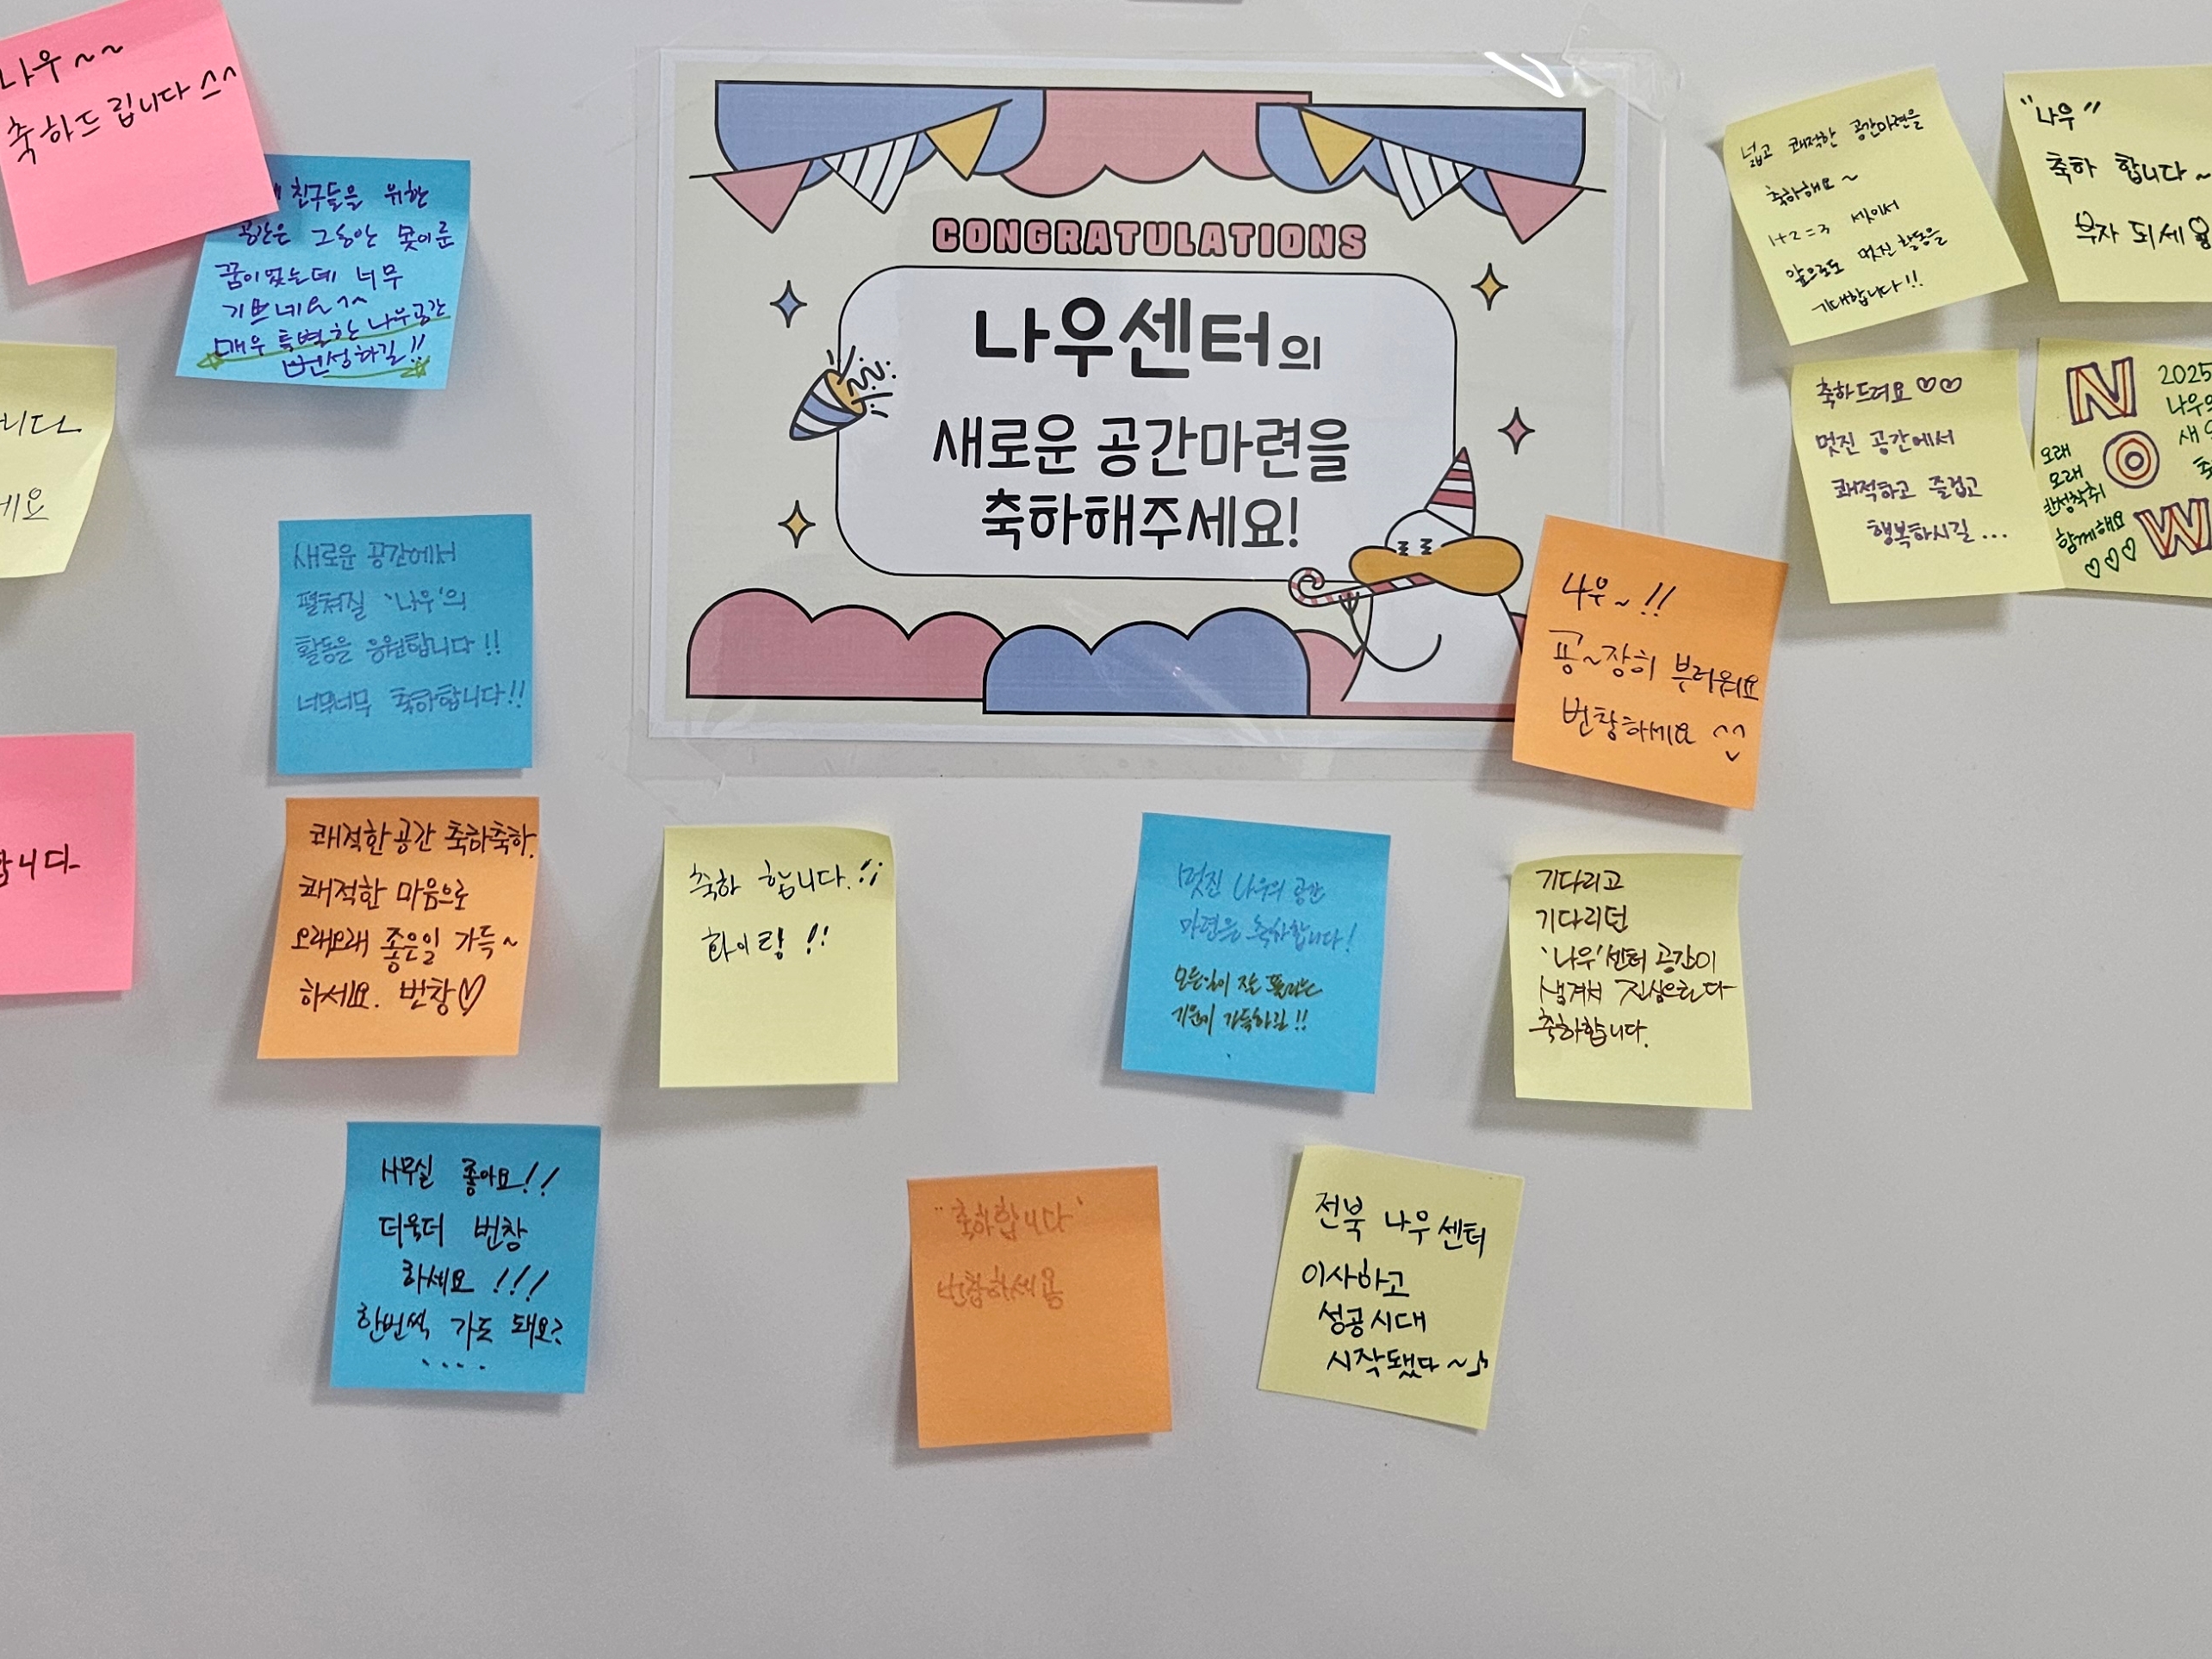 CONGRATULATIONS
나우센터의
새로운 공간마련을
축하해주세요!
나우~~
축하드립니다^^
친구들을 위한
공간은 그동안 못이룬
꿈이었는데 너무
기쁘네요^^
매우 특별한 나우공간
번성하길!!
니다
세요
새로운 공간에서
펼쳐질 '나우'의
활동을 응원합니다!!
너무너무 축하합니다!!
합니다
쾌적한 공간 축하축하.
쾌적한 마음으로
오래오래 좋은일 가득~
하세요. 번창♡
축하 합니다.!!
화이팅!!
사무실 좋아요!!
더욱더 번창
하세요!!!
한번씩 가도 돼요?
....
"축하합니다"
번창하세용
멋진 나우의 공간
마련을 축하합니다!
모든일이 잘
기운이 가득하길!!
전북 나우센터
이사하고
성공시대
시작됐다~♪
기다리고
기다리던
'나우'센터 공간이
생겨서 진심으로다
축하합니다.
나우~!!
굉~장히 부러워요
번창하세요 ^^
넓고 쾌적한 공간마련을
축하해요~
1+2=3 셋이서
앞으로도 멋진 활동을
기대합니다!!
"나우"
축하 합니다~
부자 되세요
축하드려요♡♡
멋진 공간에서
쾌적하고 즐겁고
행복하시길...
NOW
2025
나우의
새
축
오래
오래
함께해요
♡♡♡